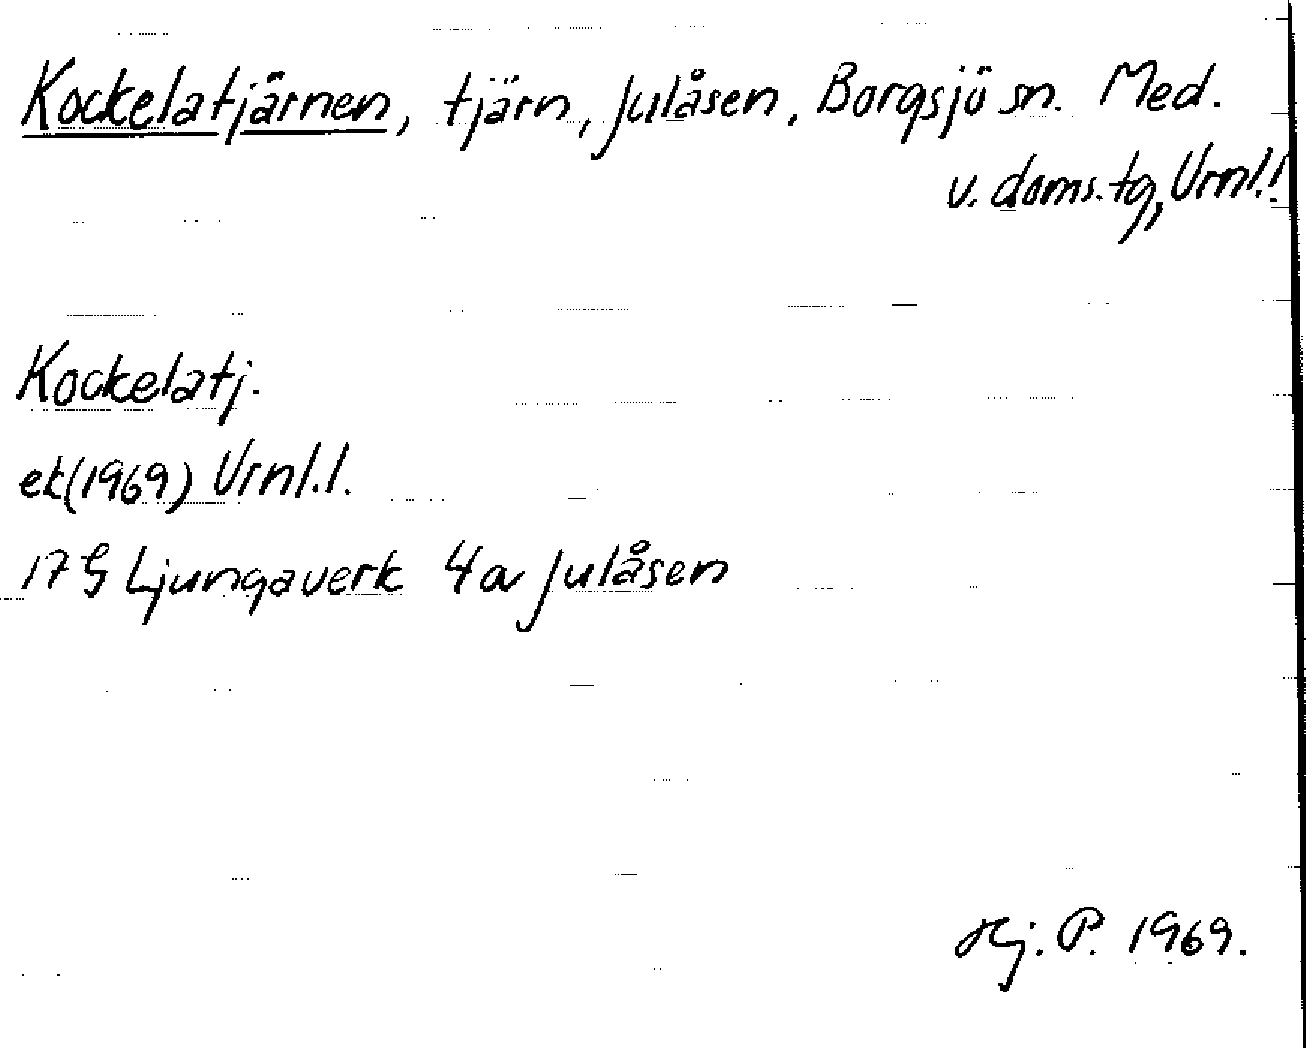 Kockelatjärnen, tjärn, Julåsen, Borgsjö sn. Med.
v. doms. tg, Vrnl.l.
Kockelatj.
ek (1969) Vrnl.l.
17 G Ljungaverk 4a Julåsen
Hj. P. 1969.